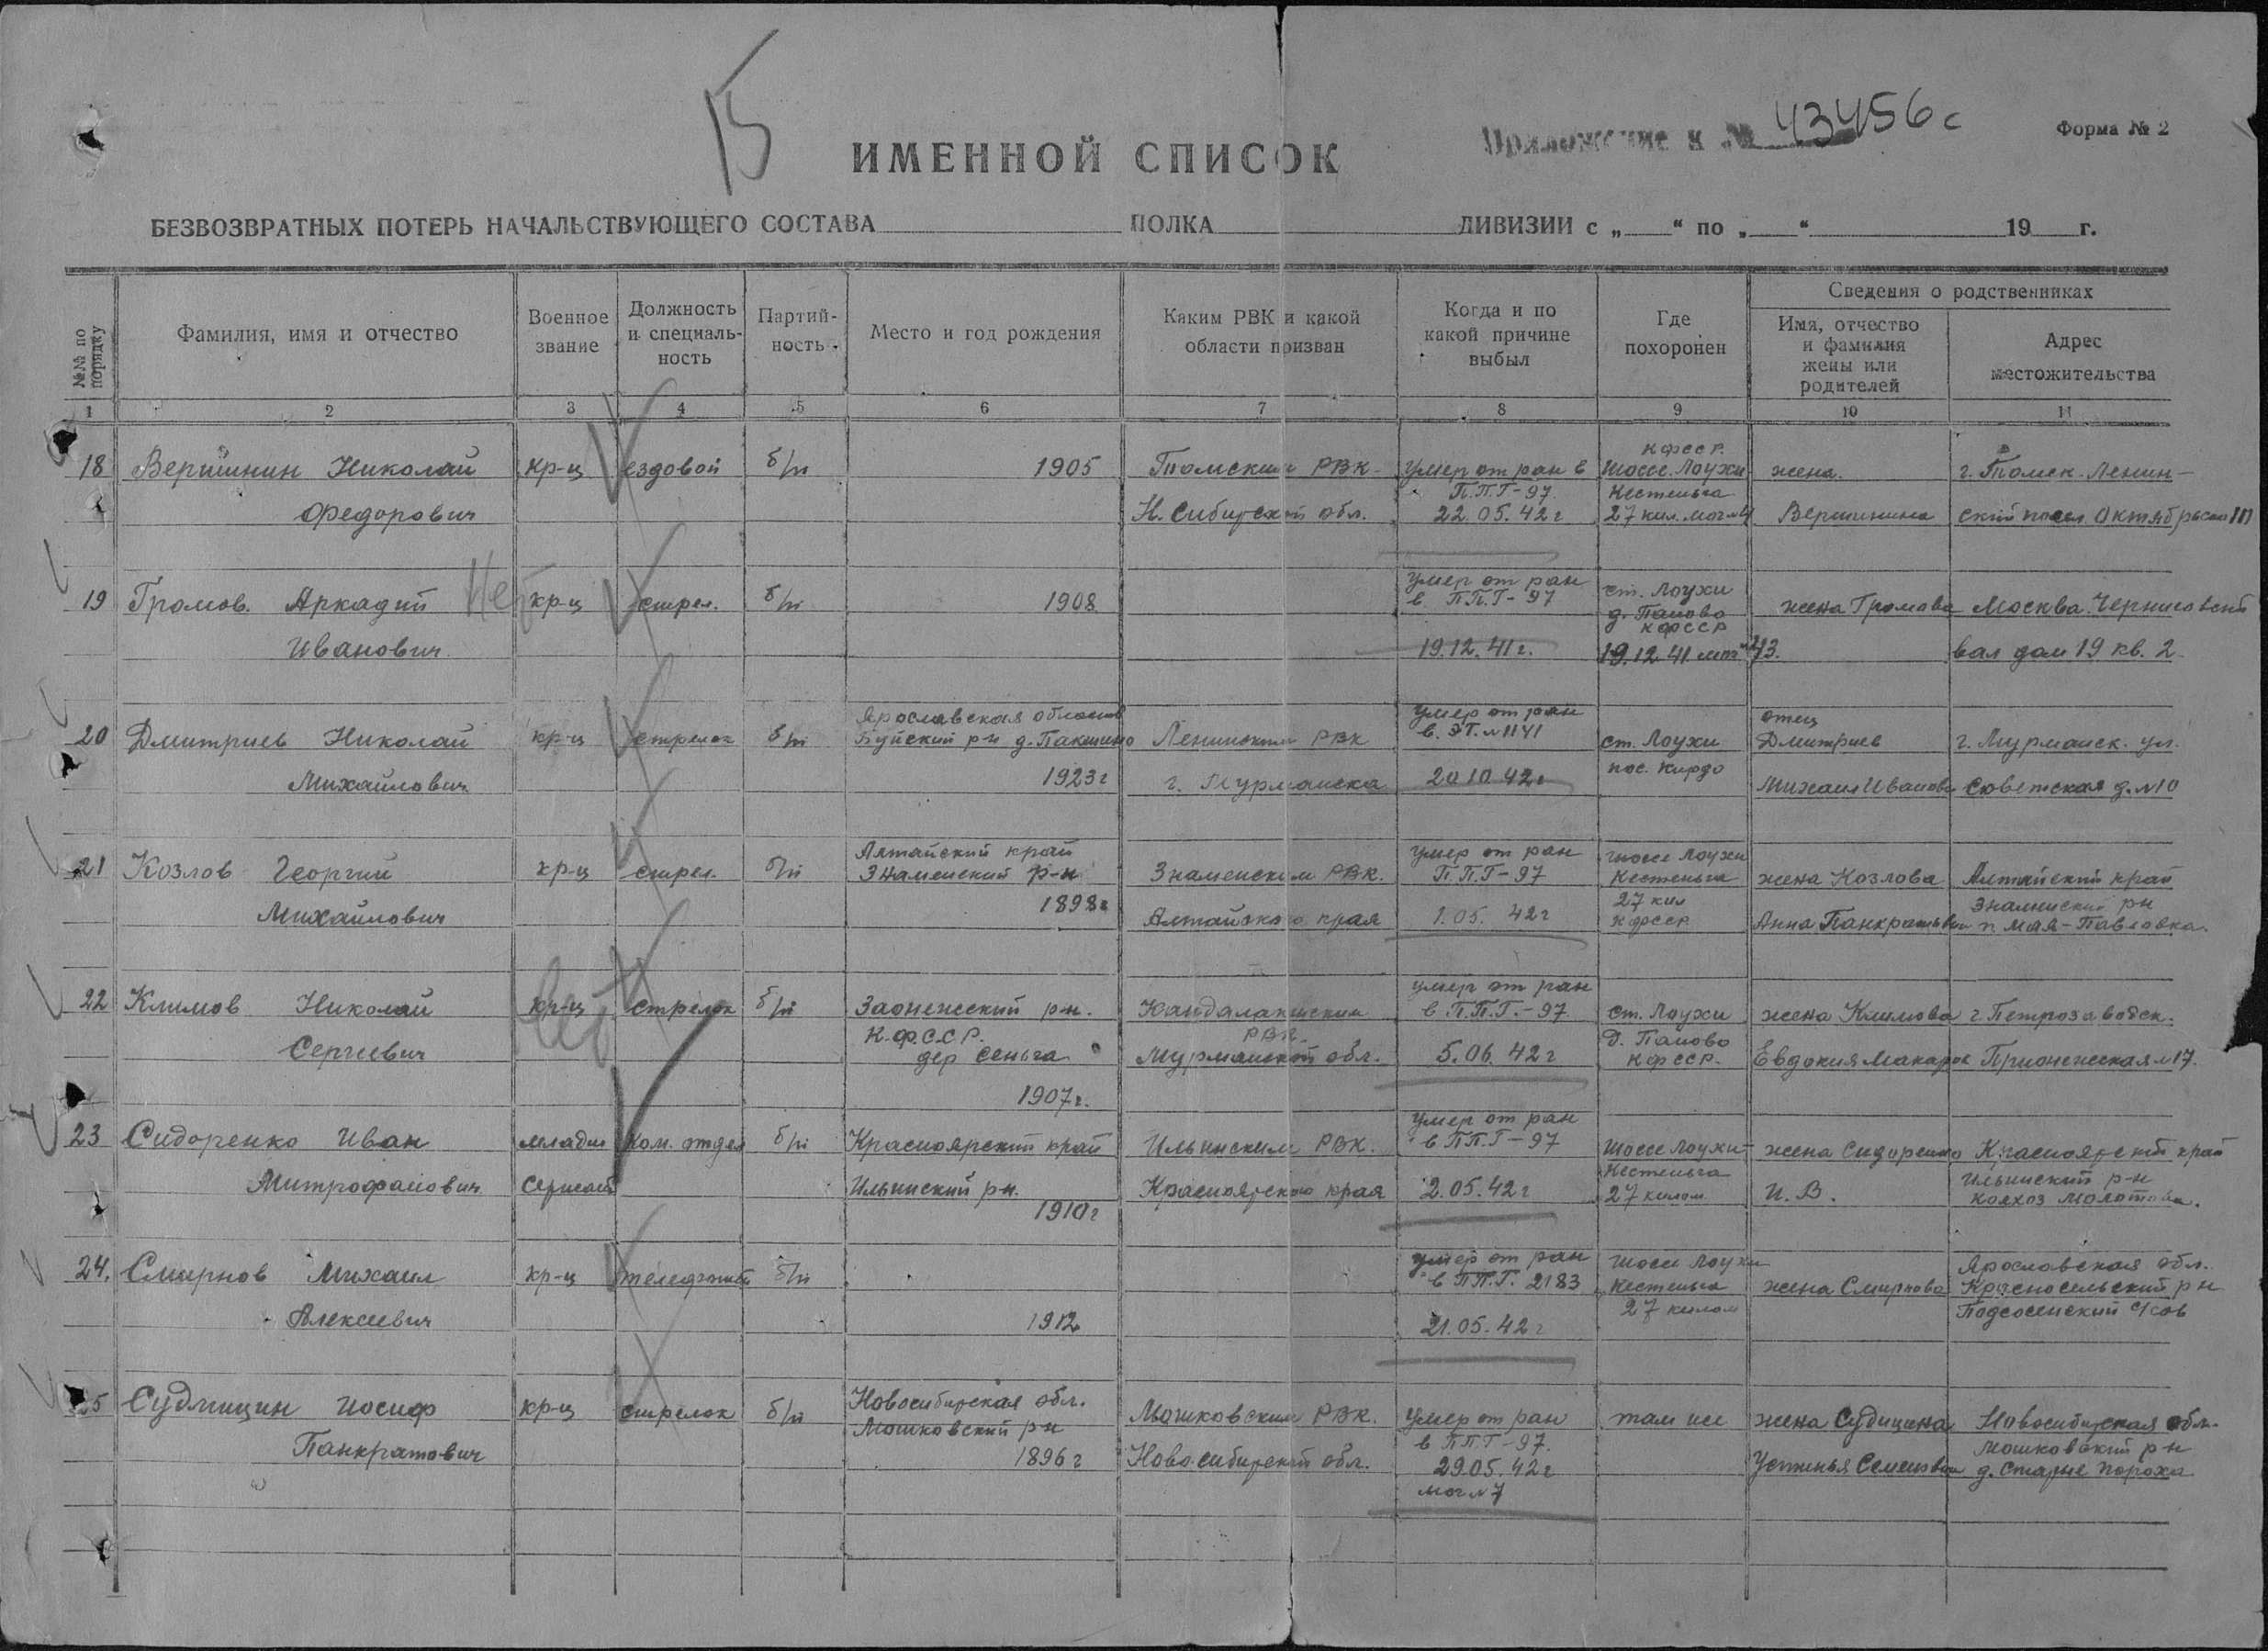 15
Приложение к № 43456с
Форма № 2
ИМЕННОЙ СПИСОК
БЕЗВОЗВРАТНЫХ ПОТЕРЬ НАЧАЛЬСТВУЮЩЕГО СОСТАВА ПОЛКА ДИВИЗИИ с „ “ по „ “ 19 г.
№№ по порядку
Фамилия, имя и отчество
Военное звание
Должность и специаль-ность
Партий-ность
Место и год рождения
Каким РВК и какой области призван
Когда и по какой причине выбыл
Где похоронен
Сведения о родственниках
Имя, отчество и фамилия жены или родителей
Адрес местожительства
1 2 3 4 5 6 7 8 9 10 11
КФССР.
18 Вершинин Николай кр-ц ездовой б/п 1905 Томским РВК умер от ран в шоссе Лоухи жена г. Томск. Ленин-
П.П.Г-97 Кестеньга
Федорович Н.Сибирской обл. 22.05.42г 27 кил. Вершинина ский посел. Октябрьская
умер от ран
19 Громов Аркадий Нет кр-ц стрел. б/п 1908 в ПП.Г-97 ст. Лоухи жена Громова Москва.
д. Паново
КФССР
Иванович 19.12.41г. 19.12.41 вал дом 19 кв. 2
Ярославская область умер от ран отец
20 Дмитриев Николай кр-ц стрелок б/п Буйский рн д. Пакшино Ленинским РВК в. ЭГ.№1141 ст. Лоухи Дмитриев г. Мурманск. ул.
Михайлович 1923г г. Мурманска 20.10.42г пос. Михаил Иванов Советская д.№10
Алтайский край умер от ран шоссе Лоухи
21 Козлов Георгий кр-ц стрел. б/п Знаменский р-н Знаменским РВК. П.П.Г-97 Кестеньга жена Козлова Алтайский край
1898г 27 кил Знаменский рн
Михайлович Алтайского края 1.05.42г КФССР Анна п. Мая-Павловка.
умер от ран
22 Климов Николай Нет кр-ц стрелок б/п Заонежский р-н. Кандалакшским в П.П.Г.-97 ст. Лоухи жена Климова г. Петрозаводск.
К.Ф.С.С.Р. РВК. Д. Паново
Сергеевич дер Сеньга Мурманской обл. 5.06.42г КФССР. Евдокия Макаров Прионежская №17.
1907г.
умер от ран
23 Сидоренко Иван младш ком. отдел б/п Красноярский край Ильинским РВК. в ПП.Г-97 шоссе Лоухи- жена Сидоренко Красноярский край
Кестеньга Ильинский р-н
Митрофанович Сержант Ильинский рн. Красноярского края 2.05.42г 27 килом И.В. колхоз Молотова.
1910г
умер от ран шоссе Лоухи Ярославская обл.
24. Смирнов Михаил кр-ц телефонист б/п в ПП.Г. 2183 Кестеньга жена Смирнова Красносельский рн
27 килом Подсосенский с/сов
Алексеевич 1912 21.05.42г
Новосибирская обл.
25 Судницин Иосиф кр-ц стрелок б/п Мошковский рн Мошковским РВК. умер от ран там же жена Судницина Новосибирская обл.
в ППГ-97. Мошковский рн
Панкратович 1896г Новосибирской обл. 29.05.42г Устинья д. Старые Пороха
мог№7